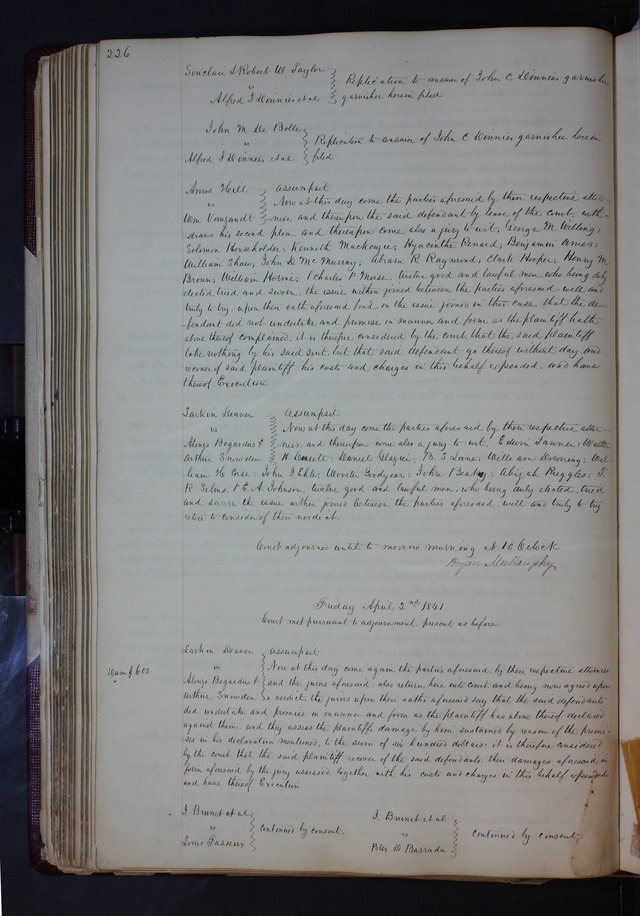 226
Sinclair & Robert W Taylor
vs
Alfred J Dinnies et al
Replication to answer of John C Dinnies garnishee
garnishee herein filed
John M De Bolle
vs
Alfred J Dinnies et al
Replication to answer of John C Dinnies garnishee herein
filed
Amos Hill
vs
Wm Vanzandt
assumpsit
Now at this day come the parties aforesaid by their respective attor-
nies, and thereupon the said defendant by leave of the court, with-
draws his second plea and thereupon come also a jury to wit, George M. Willing;
Solomon Householder; Kenneth Mackenzie; Hyacinthe Renard; Benjamin
William Shaw; John D. McMurray; Abram R Raymond; Clark Hooper; Henry M.
Brown; William Horine; & Charles P Morse, twelve good and lawful men, who being duly
elected, tried and sworn, the issue within joined between the parties aforesaid, well and
truly to try, upon their oath aforesaid find on the issue joined in this case that the de-
fendant did not undertake and promise in manner and form as the plaintiff hath
above thereof complained, it is therefore considered by the court that the said plaintiff
take nothing by his said suit, but that said defendant go thereof without day, and
recover of said plaintiff his costs and charges in this behalf expended, and have
thereof Execution
Larkin Deaver
vs
Alonzo Bogardus &
Arthur Snowden
assumpsit
Now at this day come the parties aforesaid by their respective attor-
nies, and thereupon come also a jury to wit, Edwin Tanner; Walter
H ; Daniel ; B. S. ; William Downing; Wil-
liam H Case; John J. ; Wooster Goodyear; John ; Abijah Ruggles; J.
R Selms & C. A. Johnson, twelve good and lawful men, who being duly elected, tried
and sworn the issue within joined between the parties aforesaid, well and truly to try
retire to consider of their verdict.
Court adjourned until to morrow morning at 10 Oclock
Bryan Mullanphy
Friday April 2nd 1841
Court met pursuant to adjournment, present as before.
Dam $600.
Larkin Deaver
vs
Alonzo Bogardus &
Arthur Snowden
assumpsit
Now at this day come again the parties aforesaid, by their respective attornies
and the jurors aforesaid, also return here into court and being now agreed upon
a verdict, the jurors upon their oaths aforesaid say that the said defendants
did undertake and promise in manner and form as the plaintiff has above thereof declared
against them, and they assess the plaintiffs damage by him sustained by reason of the premi-
ses in his declaration mentioned, to the sum of six hundred dollars; it is therefore considered
by the court that the said plaintiff recover of the said defendants, their damages aforesaid in
form aforesaid by the jury assessed together with his costs and charges in this behalf expended
and have thereof Execution
J. Brunet et al
vs
Louis Tasseur
continued by consent.
J. Brunet et al
vs
Peter D Barrada
continued by consent.